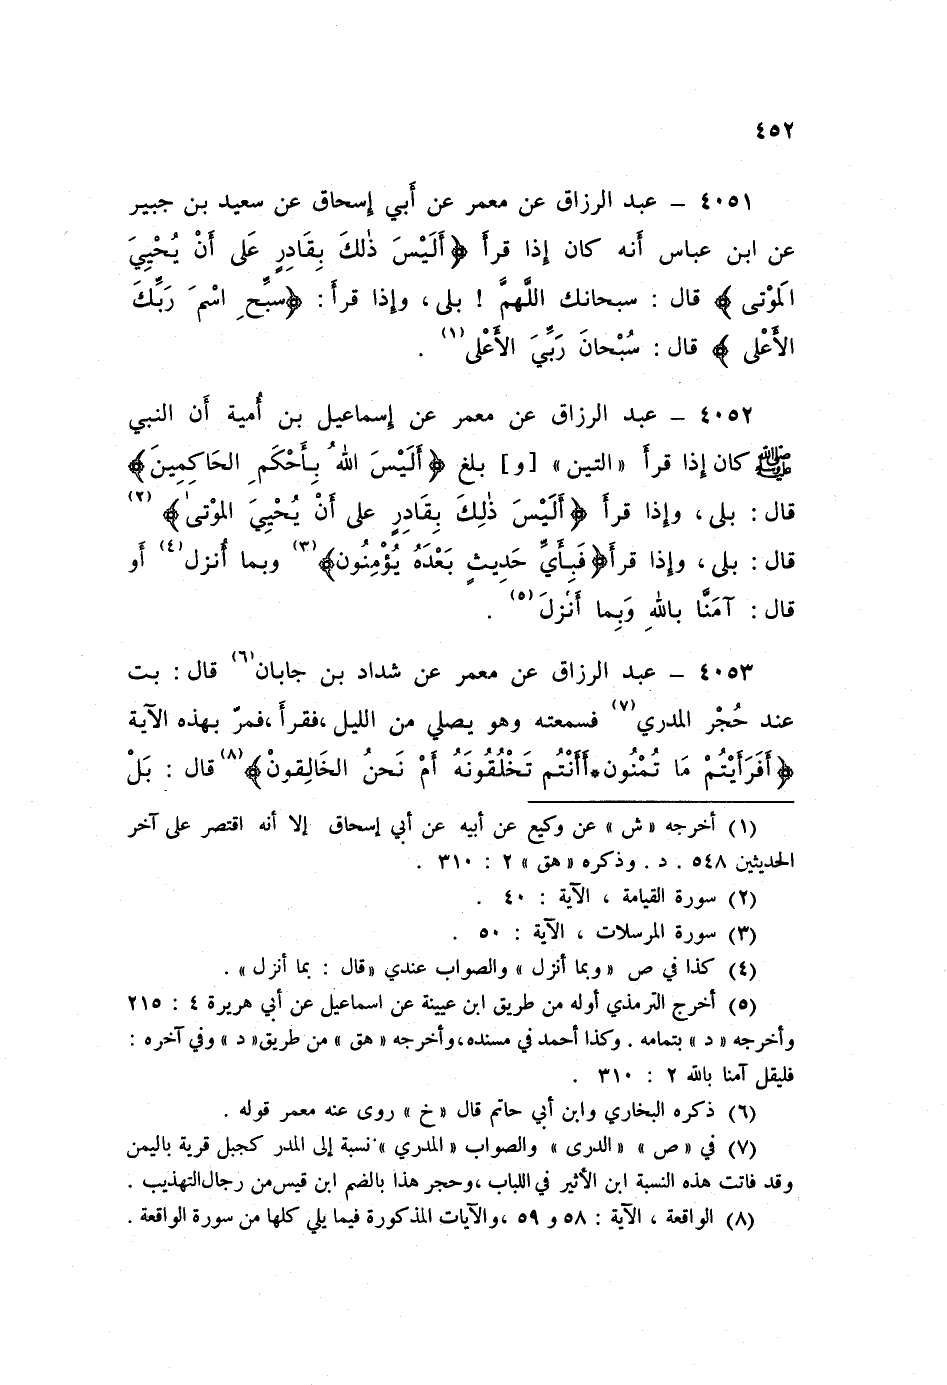 ٤٥٢
٤٠٥١ – عبد الرزاق عن معمر عن أَبي إسحاق عن سعيد بن جبير
عن ابن عباس أنه كان إذا قرأَ ﴿أَلَيْسَ ذٰلكَ بِقَادِرٍ عَلى أَنْ يُحْيِيَ
المَوْتى﴾ قال : سبحانك اللَّهمَّ ! بلى ، وإذا قرأَ : ﴿سبِّحِ اسْمَ رَبِّكَ
الأَعْلى﴾ قال : سُبْحانَ رَبِّيَ الأَعْلى(١) .
٤٠٥٢ – عبد الرزاق عن معمر عن إسماعيل بن أُمية أن النبي
ﷺ كان إذا قرأَ «التين» [و] بلغ ﴿أَلَيْسَ اللهُ بِأَحْكَمِ الحَاكِمِينَ﴾
قال : بلى ، وإذا قرأَ ﴿أَلَيْسَ ذٰلِكَ بِقَادِرٍ على أَنْ يُحْيِيَ الموْتىٰ﴾ (٢)
قال : بلى ، وإذا قرأَ﴿فَبِأَيِّ حَدِيثٍ بَعْدَهُ يُؤْمِنُون﴾(٣) وبما أُنزل(٤) أَو
قال : آمَنَّا باللهِ وَبِما أُنْزِلَ(٥) .
٤٠٥٣ – عبد الرزاق عن معمر عن شداد بن جابان(٦) قال : بت
عند حُجْر المدري(٧) فسمعته وهو يصلي من الليل ،فقرأَ ،فمرّ بهذه الآية
﴿أَفَرَأَيْتُمْ مَا تُمْنُون٭أَأَنْتُم تَخْلُقُونَهُ أَمْ نَحنُ الخَالِقونْ﴾(٨) قال : بَلْ
(١) أخرجه «ش» عن وكيع عن أبيه عن أبي إسحاق إلا أنه اقتصر على آخر
الحديثين ٥٤٨ . د . وذكره «هق» ٢ : ٣١٠ .
(٢) سورة القيامة ، الآية : ٤٠ .
(٣) سورة المرسلات ، الآية : ٥٠ .
(٤) كذا في ص «وبما أنزل» والصواب عندي «قال : بما أنزل» .
(٥) أخرج الترمذي أوله من طريق ابن عيينة عن اسماعيل عن أبي هريرة ٤ : ٢١٥
وأخرجه «د» بتمامه . وكذا أحمد في مسنده،وأخرجه «هق» من طريق«د» وفي آخره :
فليقل آمنا بالله ٢ : ٣١٠ .
(٦) ذكره البخاري وابن أبي حاتم قال «خ» روى عنه معمر قوله .
(٧) في «ص» «الدرى» والصواب «المدري» نسبة إلى المدر كجبل قرية باليمن
وقد فاتت هذه النسبة ابن الأثير في اللباب ،وحجر هذا بالضم ابن قيس من رجال التهذيب .
(٨) الواقعة ، الآية : ٥٨ و ٥٩ ،والآيات المذكورة فيما يلي كلها من سورة الواقعة .